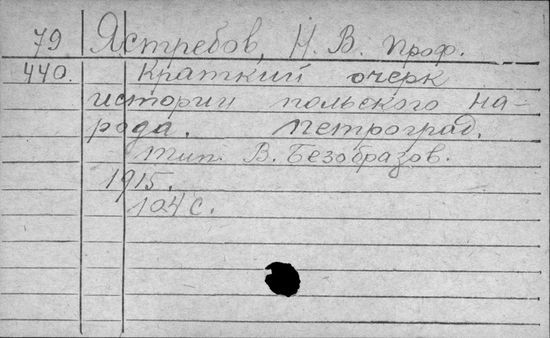 79 Ястребов, Н. В. проф.
440. Краткий очерк
истории польского на-
рода. Петроград.
тип. В. Безобразов.
1915.
104 с.